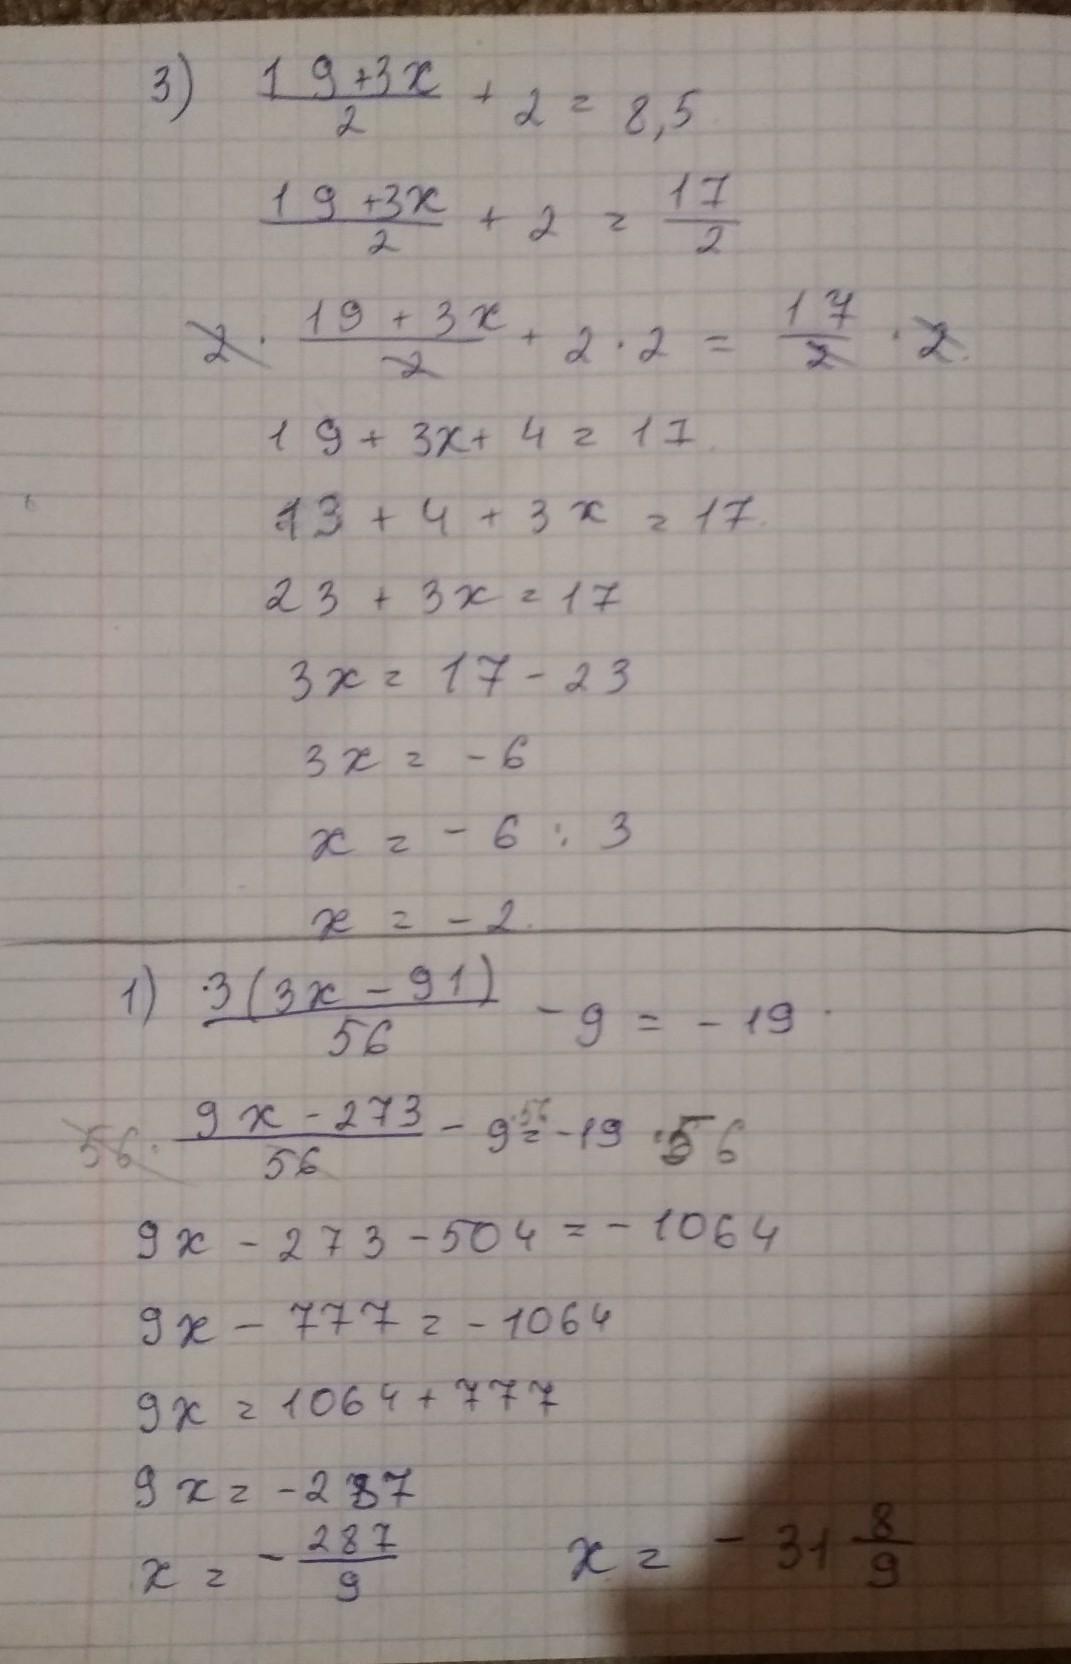 3) (19+3x)/2 + 2 = 8,5
(19+3x)/2 + 2 = 17/2
2 · (19+3x)/2 + 2·2 = 17/2 · 2
19 + 3x + 4 = 17
13 + 4 + 3x = 17
23 + 3x = 17
3x = 17 - 23
3x = - 6
x = - 6 : 3
x = - 2
1) 3(3x - 91)/56 - 9 = - 19
56 · (9x - 273)/56 - 9·56 = -19 ·56
9x - 273 - 504 = - 1064
9x - 777 = - 1064
9x = 1064 + 777
9x = - 287
x = - 287/9 x = - 31 8/9